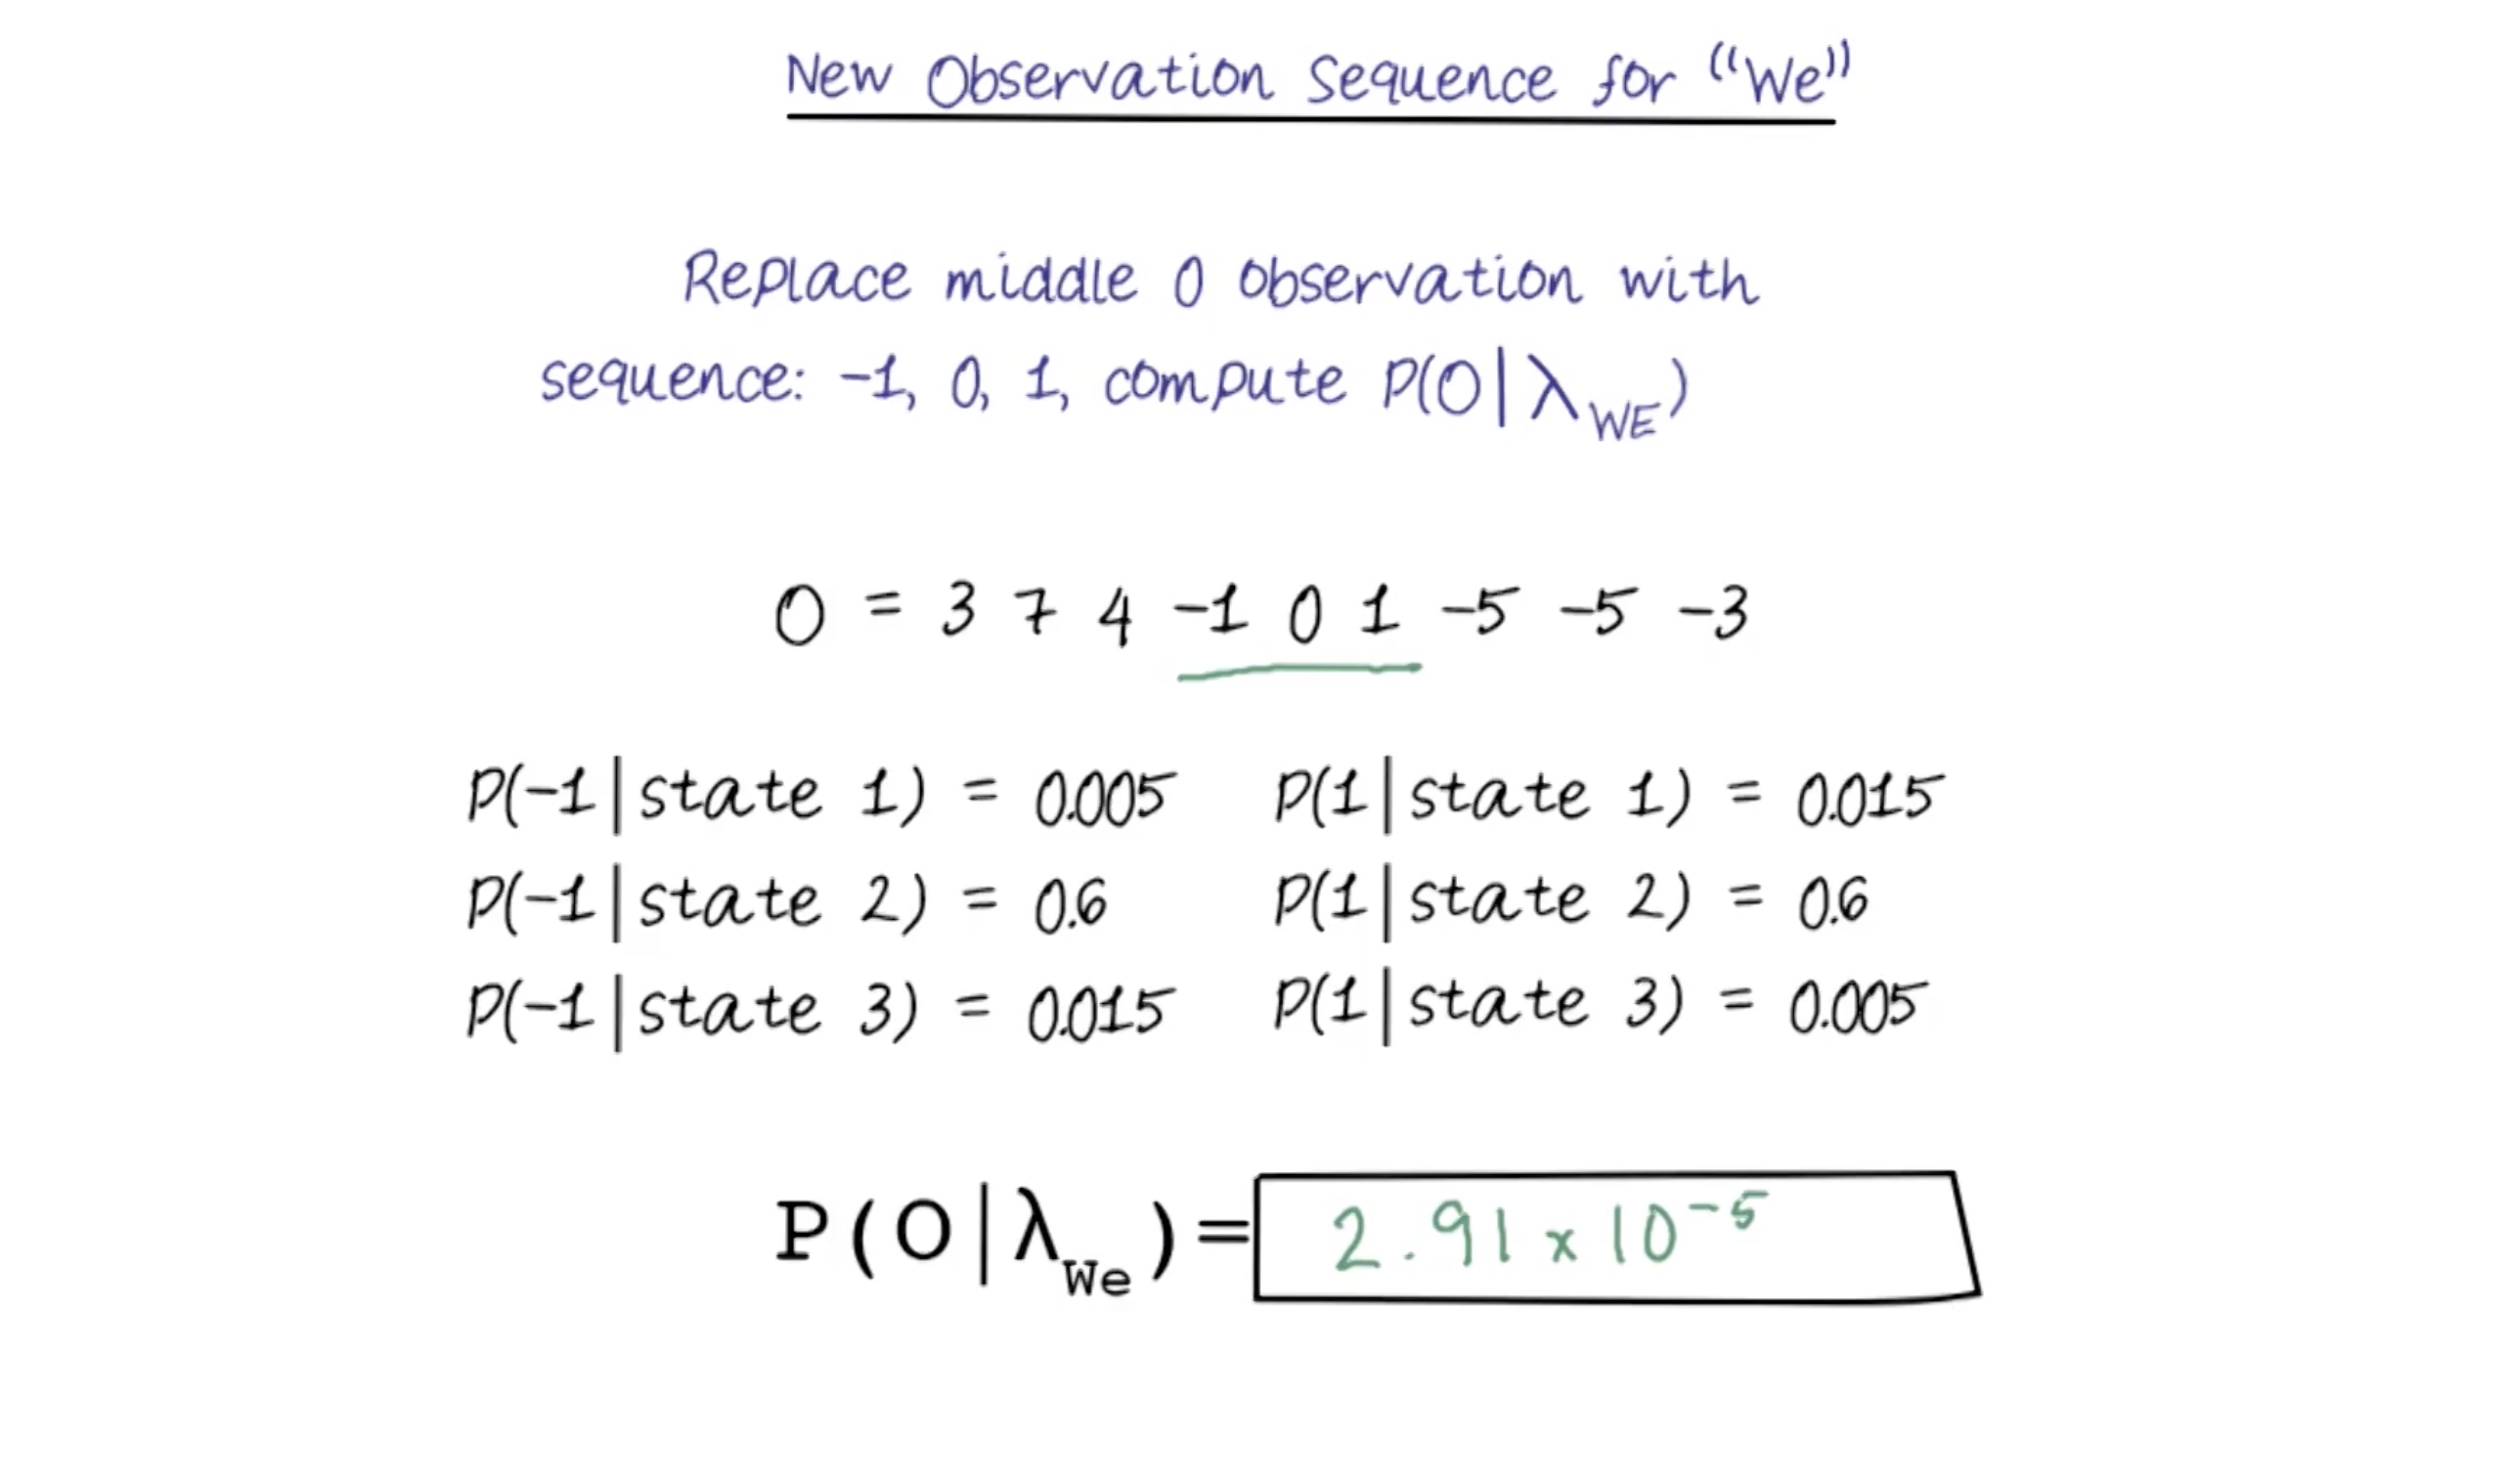 New Observation Sequence for "We"
Replace middle 0 observation with
sequence: -1, 0, 1, compute P(O|λ_WE)
O = 3 7 4 -1 0 1 -5 -5 -3
P(-1|state 1) = 0.005 P(1|state 1) = 0.015
P(-1|state 2) = 0.6 P(1|state 2) = 0.6
P(-1|state 3) = 0.015 P(1|state 3) = 0.005
P(O|λ_We)= 2.91 x 10^-5